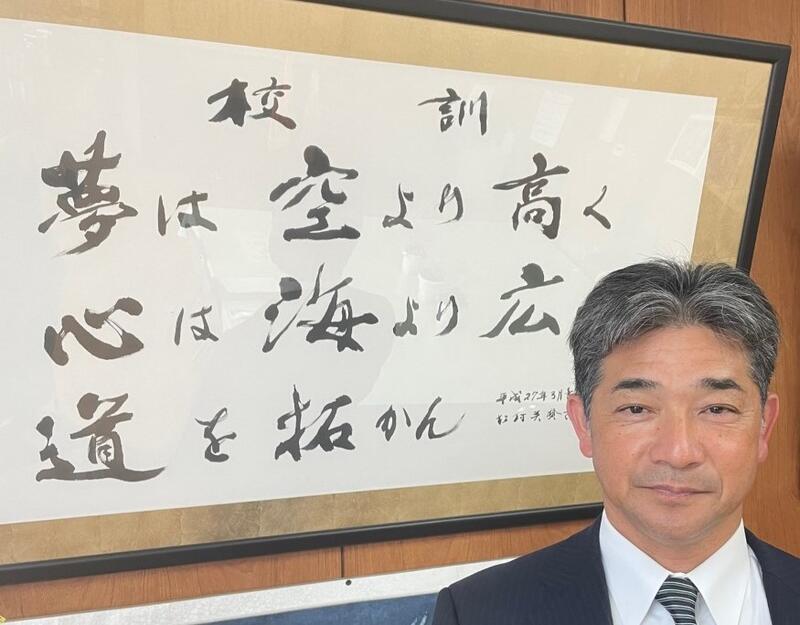 校訓
夢は空より高く
心は海より広
道を拓かん
平成27年3月